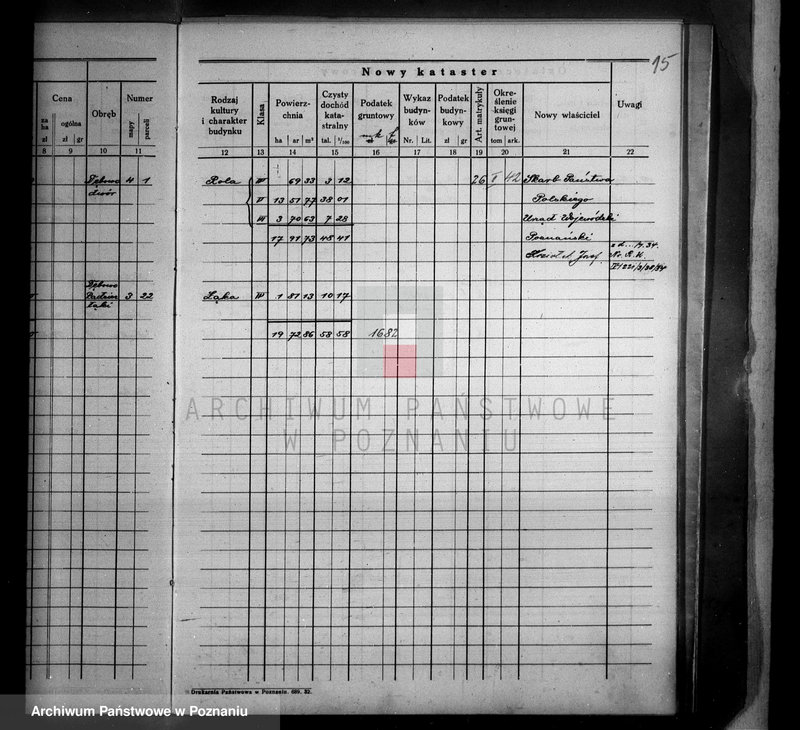 15
Nowy kataster
Cena
Obręb
Numer
Rodzaj kultury i charakter budynku
Klasa
Powierzchnia
Czysty dochód katastralny
Podatek gruntowy
Wykaz budynków
Podatek budynkowy
Art. matrykuły
Określenie księgi gruntowej
Nowy właściciel
Uwagi
za ha
ogólna
mapy
parceli
zł zł gr
ha ar m² tal. ¹/₁₀₀ Nr. Lit. zł gr tom ark.
8 9 10 11 12 13 14 15 16 17 18 19 20 21 22
Dębno 4 1 Rola 69 33 3 12 26 I 42 Skarb Państwa
dwór 13 51 77 38 01 Polskiego
3 70 63 7 28 Urząd Wojewódzki
17 91 73 48 41 Poznański
Dębno
3 22 Łąka 1 81 13 10 17
Łąki
19 72 86 58 58 1682
ARCHIWUM PAŃSTWOWE
W POZNANIU
Drukarnia Państwowa w Poznaniu. 689. 32.
Archiwum Państwowe w Poznaniu